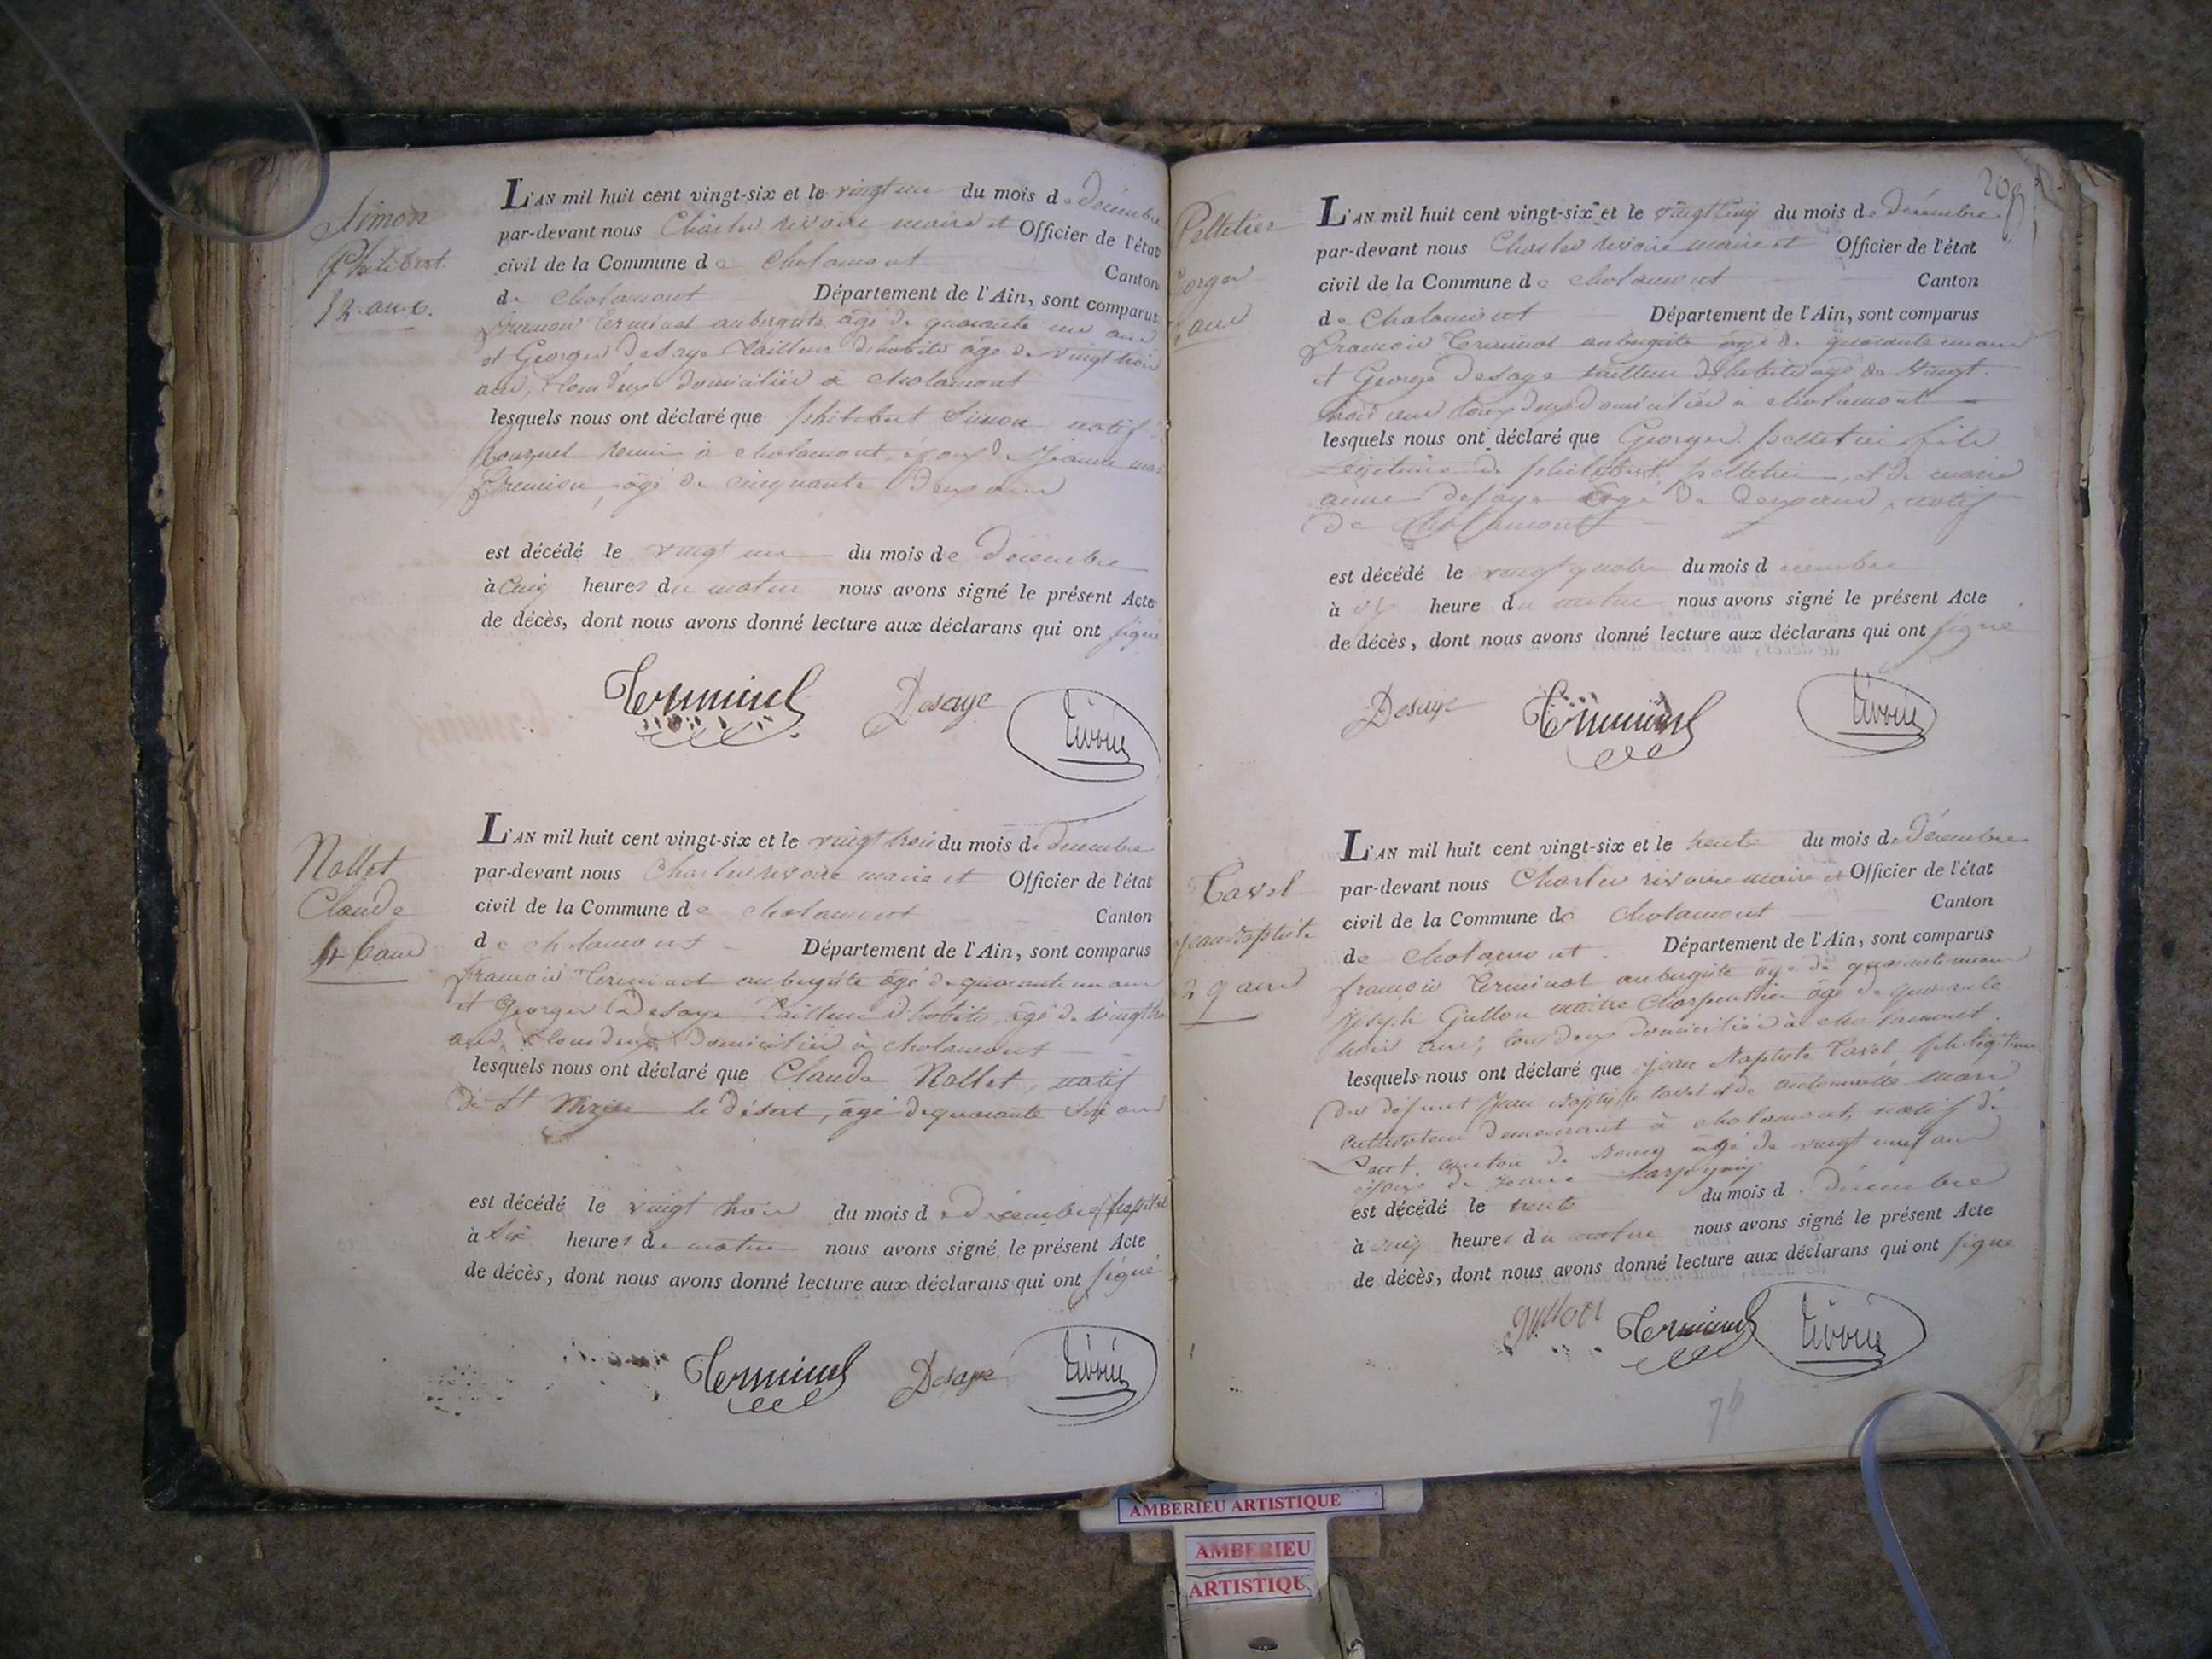 Simon
Philibert
52 ans.
L'AN mil huit cent vingt-six et le vingt un du mois de décembre
par-devant nous Charles rivoire maire et Officier de l'état
civil de la Commune de chalamont Canton
de chalamont Département de l'Ain, sont comparus
françois Terminet aubergiste âgé de quarante un ans
et Georges desaye tailleur d'habits âgé de vingt trois
ans, tous deux domiciliés à chalamont
lesquels nous ont déclaré que philibert Simon natif
à chalamont époux de Jeanne
âgé de cinquante deux ans
est décédé le vingt un du mois de décembre
à cinq heures du matin nous avons signé le présent Acte
de décès, dont nous avons donné lecture aux déclarans qui ont signé
Terminet Desaye rivoire
Nallet
Claude
46 ans
L'AN mil huit cent vingt-six et le vingt trois du mois de décembre
par-devant nous Charles rivoire maire et Officier de l'état
civil de la Commune de chalamont Canton
de chalamont Département de l'Ain, sont comparus
françois Terminet aubergiste âgé de quarante un ans
et Georges Desaye tailleur d'habits, âgé de vingt trois
ans, tous deux domiciliés à chalamont
lesquels nous ont déclaré que Claude Nallet, natif
de St Nizier le désert, âgé de quarante six ans
est décédé le vingt trois du mois de décembre
à six heures du matin nous avons signé le présent Acte
de décès, dont nous avons donné lecture aux déclarans qui ont signé
Terminet Desaye rivoire
208
Pelletier
Georges
2 ans
L'AN mil huit cent vingt-six et le vingt cinq du mois de décembre
par-devant nous Charles rivoire maire et Officier de l'état
civil de la Commune de chalamont Canton
de Chalamont Département de l'Ain, sont comparus
françois Terminet aubergiste âgé de quarante un ans
et George desaye tailleur d'habits âgé de vingt
trois ans tous deux domiciliés à chalamont
lesquels nous ont déclaré que Georges pelletier fils
légitime de philibert pelletier et de marie
anne desaye âgé de deux ans, natif
de chalamont
est décédé le vingt quatre du mois d écembre
à heure du matin nous avons signé le présent Acte
de décès, dont nous avons donné lecture aux déclarans qui ont signé
Desaye Terminet rivoire
Tavel
jean Baptiste
29 ans
L'AN mil huit cent vingt-six et le trente du mois de Décembre
par-devant nous Charles rivoire maire et Officier de l'état
civil de la Commune de chalamont Canton
de chalamont Département de l'Ain, sont comparus
françois Terminet aubergiste âgé de quarante un ans
joseph Guillon maître charpentier âgé de quarante
trois ans, tous deux domiciliés à chalamont
lesquels nous ont déclaré que jean Baptiste Tavel, fils légitime
des défunt jean Baptiste tavel et de
cultivateur demeurant à chalamont, natif de
canton de Bourg âgé de vingt neuf ans
époux de jeanne
est décédé le trente du mois d décembre
à cinq heures du matin nous avons signé le présent Acte
de décès, dont nous avons donné lecture aux déclarans qui ont signé
guillon Terminet rivoire
76
AMBERIEU ARTISTIQUE
AMBERIEU
ARTISTIQUE